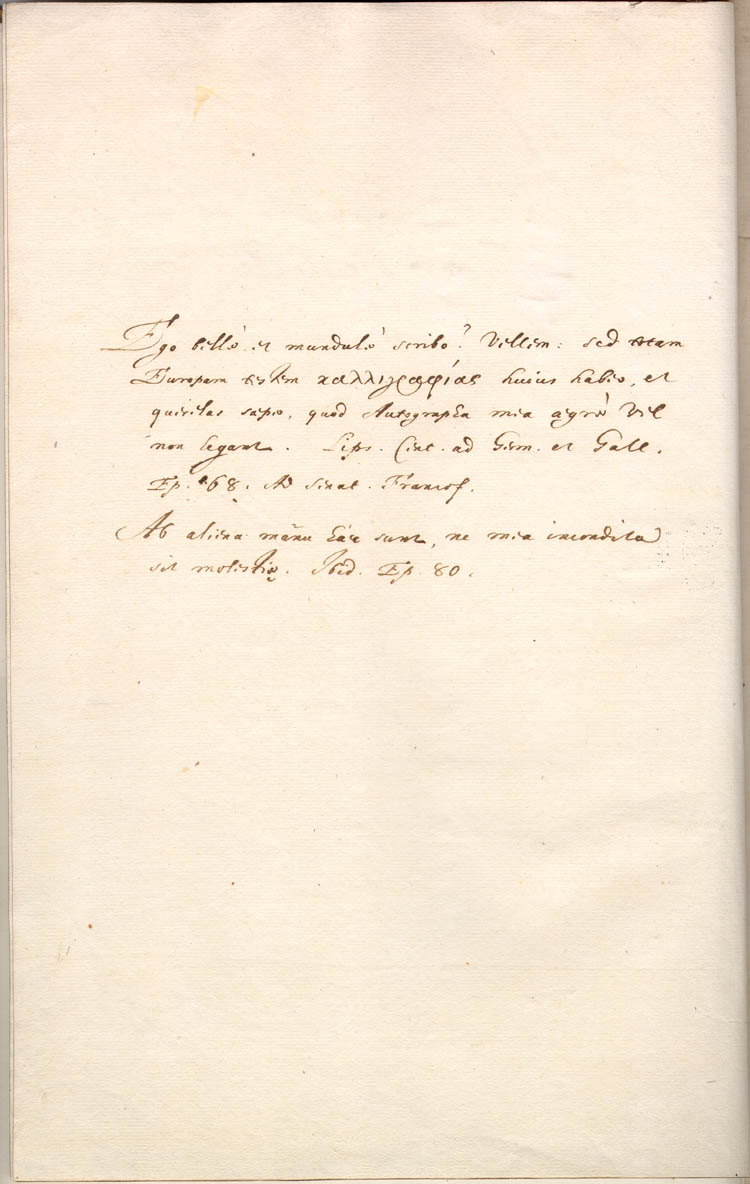 Ego bellè et mundulè scribo? Vellem: sed totam
Europam testem καλλιγραφίας huius habeo, et
querelas saepe, quod Autographa mea aegrè vel
non legant. Lips. Cent. ad Germ. et Gall.
Ep. 68. Ad Senat. Francof.
Ab aliena manu haec sunt, ne mea incondita
sit molestiae. Ibid. Ep. 80.